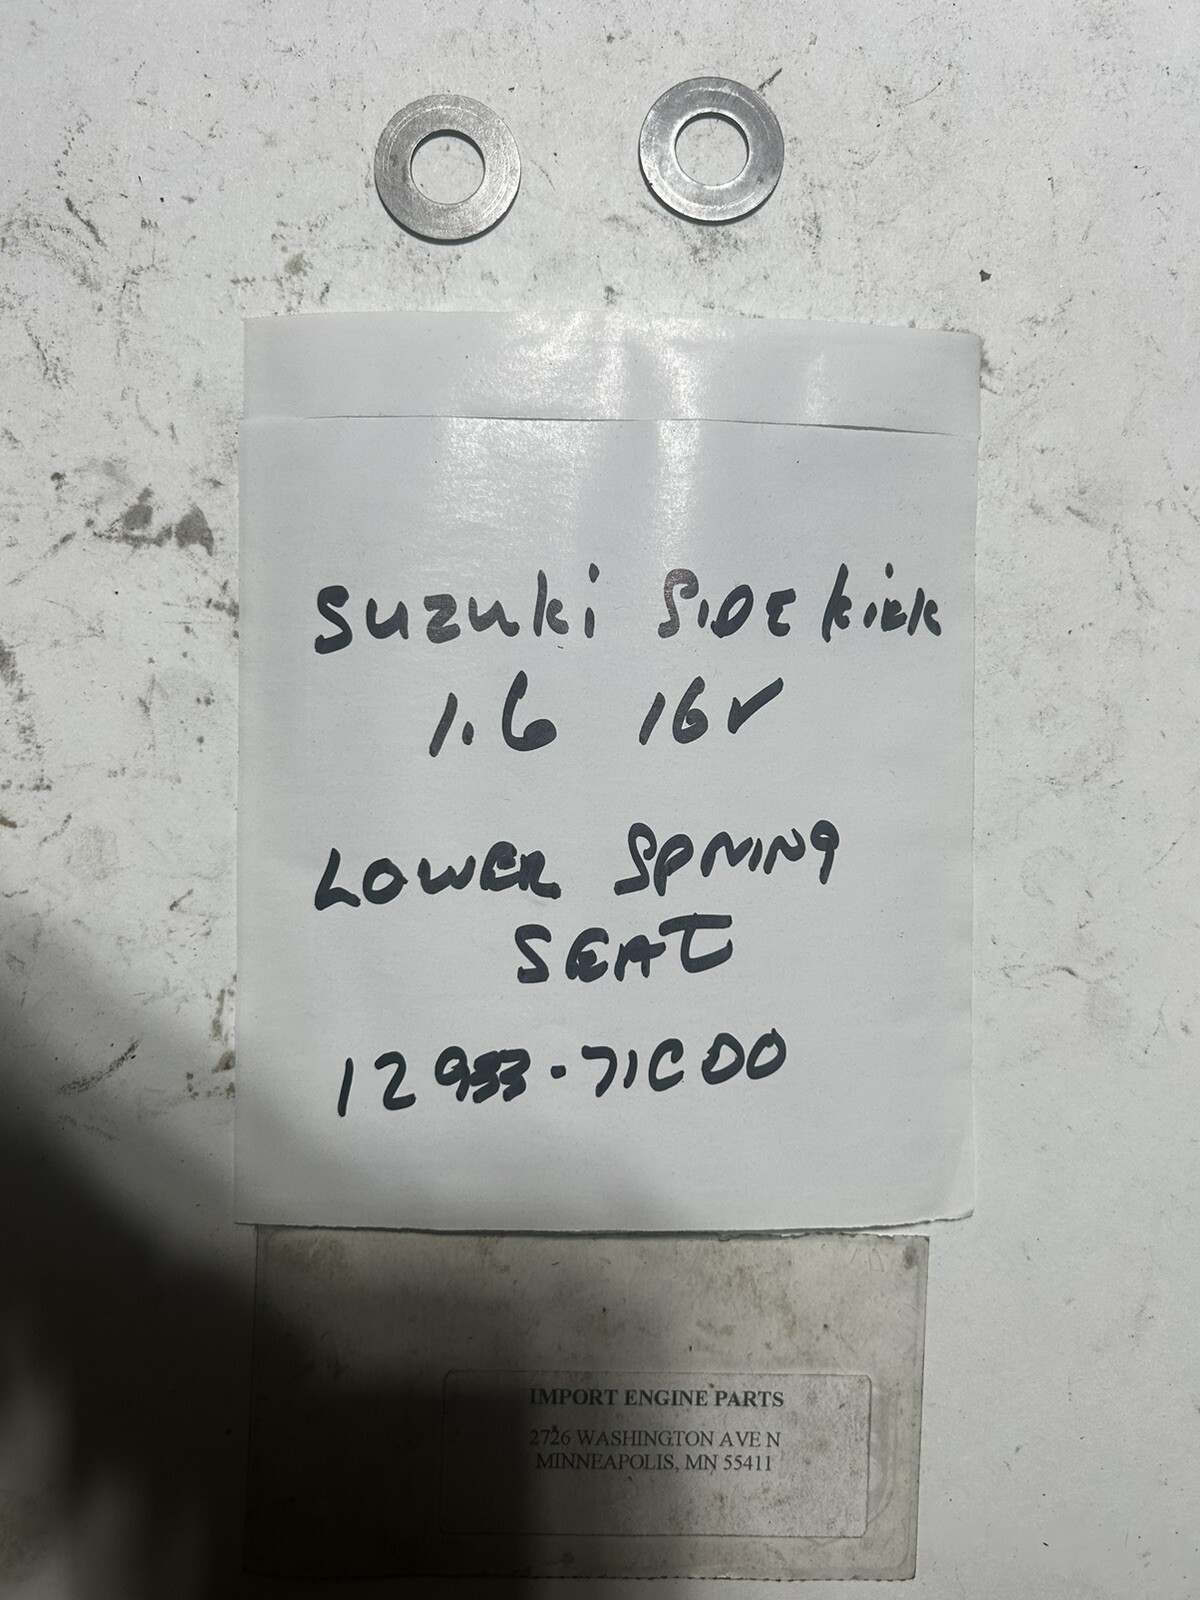 SUZUKi SIDEkick
1.6 16V
LOWER SPRING
SEAT
12933-71C00
IMPORT ENGINE PARTS
2726 WASHINGTON AVE N
MINNEAPOLIS, MN 55411